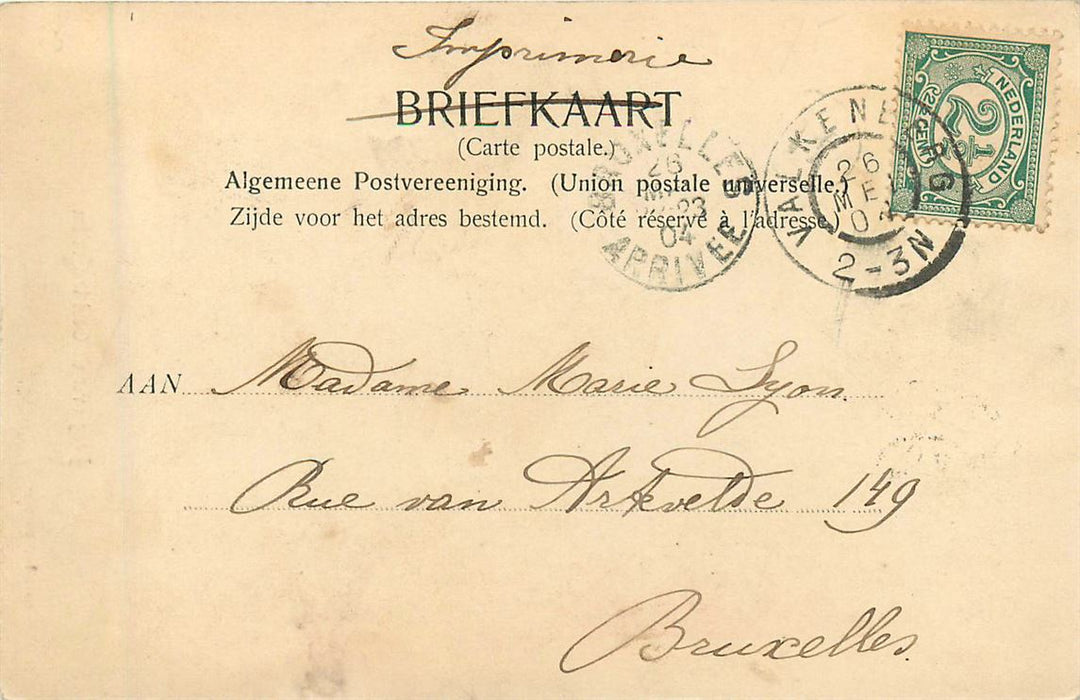 Imprimerie
BRIEFKAART
(Carte postale.)
Algemeene Postvereeniging. (Union postale universelle.)
Zijde voor het adres bestemd. (Côté réservé à l'adresse.)
BRUXELLES
26
23
04
ARRIVEE
VALKENBURG
26
MEI
2-3N
NEDERLAND
2½
CENT
AAN Madame Marie Lyon.
Rue van Artevelde 149
Bruxelles.